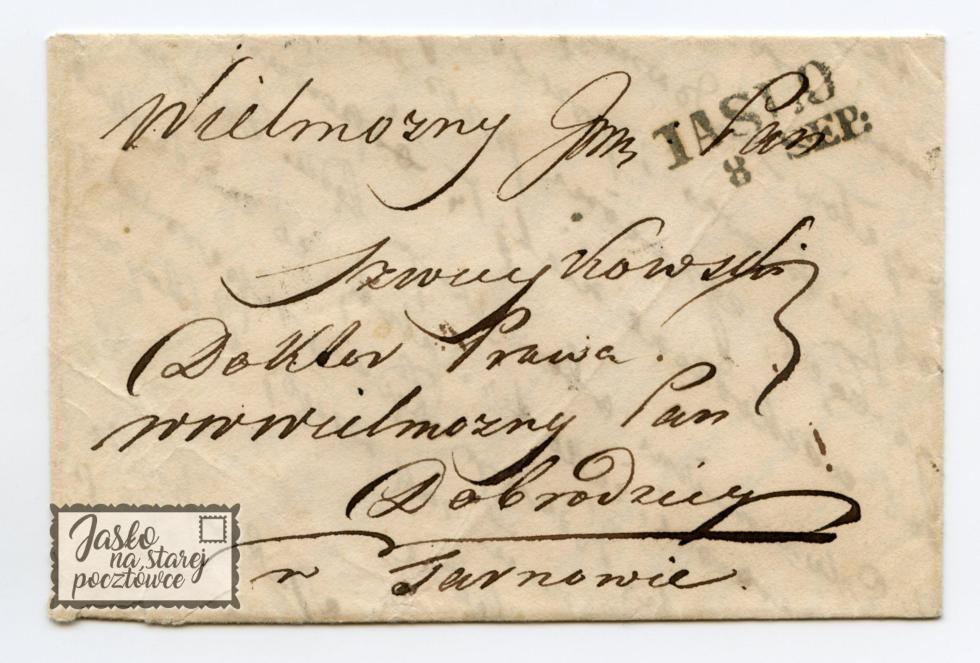 Wielmozny Jmć Pan
JASŁO
8 SEP:
Dokter Prawa.
wwwielmozny Pan
Dobrodziey !
w Tarnowie.
Jasło
na starej
pocztówce